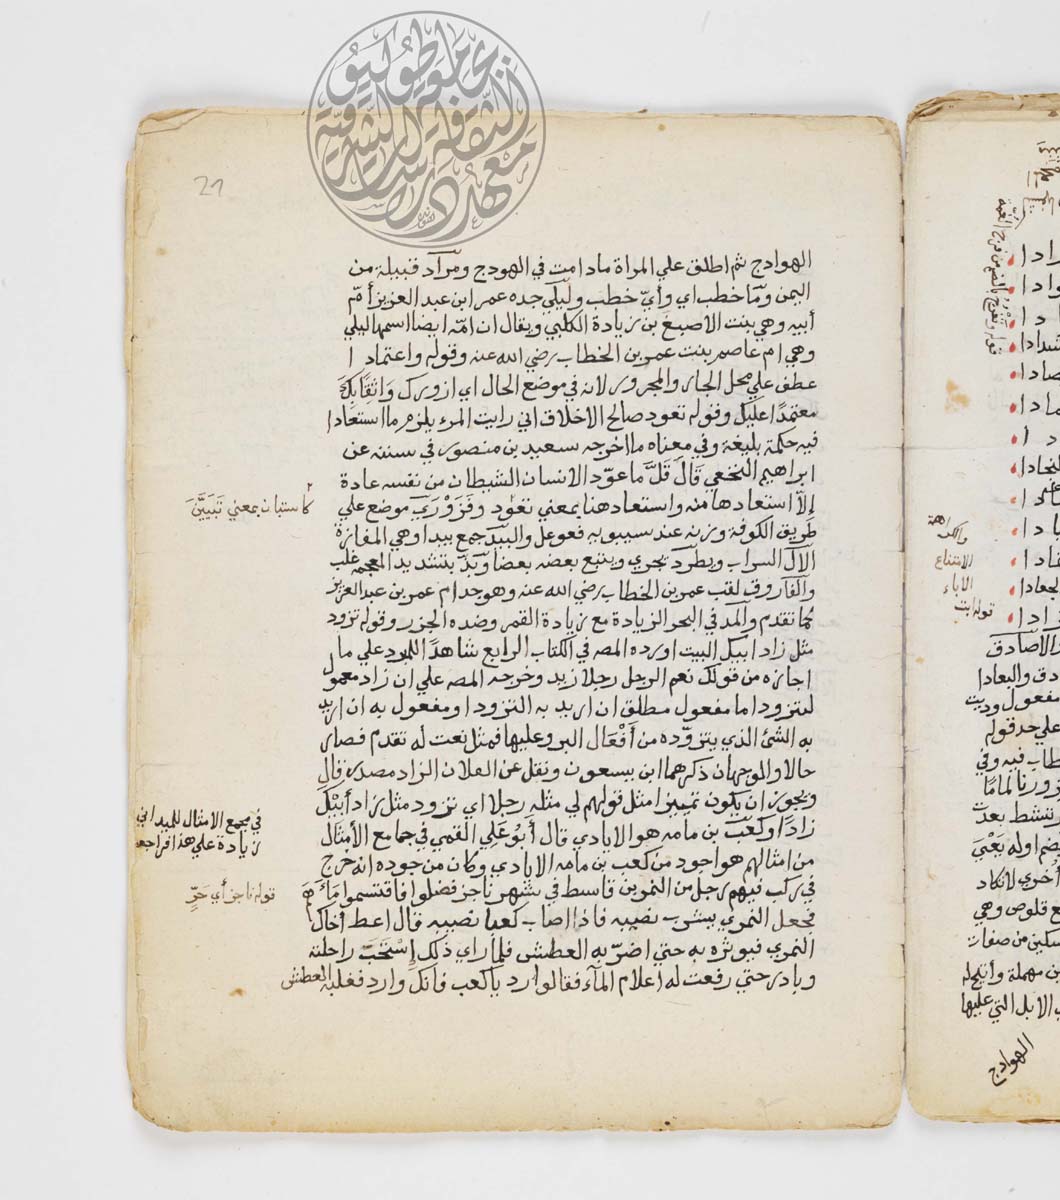 21
الهوادج ثم اطلق علي المراة مادامت في الهودج ومرآد قبيلة من
اليمن وما خطب اي وأيّ خطب وليلي جده عمر ابن عبد العزيز أمّ
أبيه وهي بنت الاصبغ بن زيادة الكلبي ويقال ان امّه ايضا اسمها ليلي
وهي ام عاصم بنت عمر بن الخطاب رضي الله عنه وقوله واعتمادا
عطف علي محل الجار والمجرور لانه في موضع الحال اي ازورك واثقا بك
معتمدًا عليك وقوله تعود صالح الاخلاق اني رايت المرء يلزم ما استعادا
فيه حكمة بليغة وفي معناه ما اخرجه سعيد بن منصور في سننه عن
ابراهيم النخعي قال قلّ ما عوّد الانسان الشيطان من نفسه عادة
إلاّ استعادها منه واستعاد هنا بمعني تعوّد وقرَوْرَي موضع علي
كاستبان بمعني تَبَيَّنَ
طريق الكوفة وزنه عند سيبويه فعوعل والبيد جمع بيدا وهي المفازة
الآل السراب ويطّرد يجري ويتبع بعضه بعضا وبذّ بتشديد المعجمه غلب
والفاروق لقب عمر بن الخطاب رضي الله عنه وهو جد ام عمر بن عبد العزيز
كما تقدم والمد في البحر الزيادة مع زيادة القمر وضده الجزر وقوله تزود
مثل زاد ابيك البيت اورده المصه في الكتاب الرابع شاهدًا للمبرد علي ما
اجازه من قولك نعم الرجل رجلا زيد وخرجه المصه علي ان زاد معمول
لتزود اما مفعول مطلق ان اريد به التزود او مفعول به ان اريد
به الشئ الذي يتزوّده من أفعال البر وعليها فمثل نعت له تقدم فصار
حالا والوجهان ذكرهما ابن يسعون ونقل عن الفلان الزاد مصدر قال
ويجوز ان يكون تمييزا مثل قولهم لي مثله رجلا اي تزود مثل زاد أبيك
زادًا وكعب بن مامه هو الايادي قال أبو علي القمي في جامع الأمثال
في مجمع الامثال للميداني
زيادة علي هذا فراجعه
من امثالهم هو اجود من كعب بن مامه الايادي وكان من جوده انه خرج
في ركب فيهم رجل من النمر بن قاسط في شهر ناجز فضلوا فاقتسموا ماءَهم
قوله ناجز أي حَرٍّ
فجعل النمري يشرب نصيبه فاذا اصاب كعبا نصيبه قال اعط أخاك
النمري فيوثره به حتي اضرّ به العطش فلما راي ذلك إستحَثّ راحلته
وبادر حتي رفعت له أعلام المآء فقالوا رد يا كعب فانك وارد فغلبه العطش
والكراهة
الامتناع
الاباء
قوله ابت
الهوادج